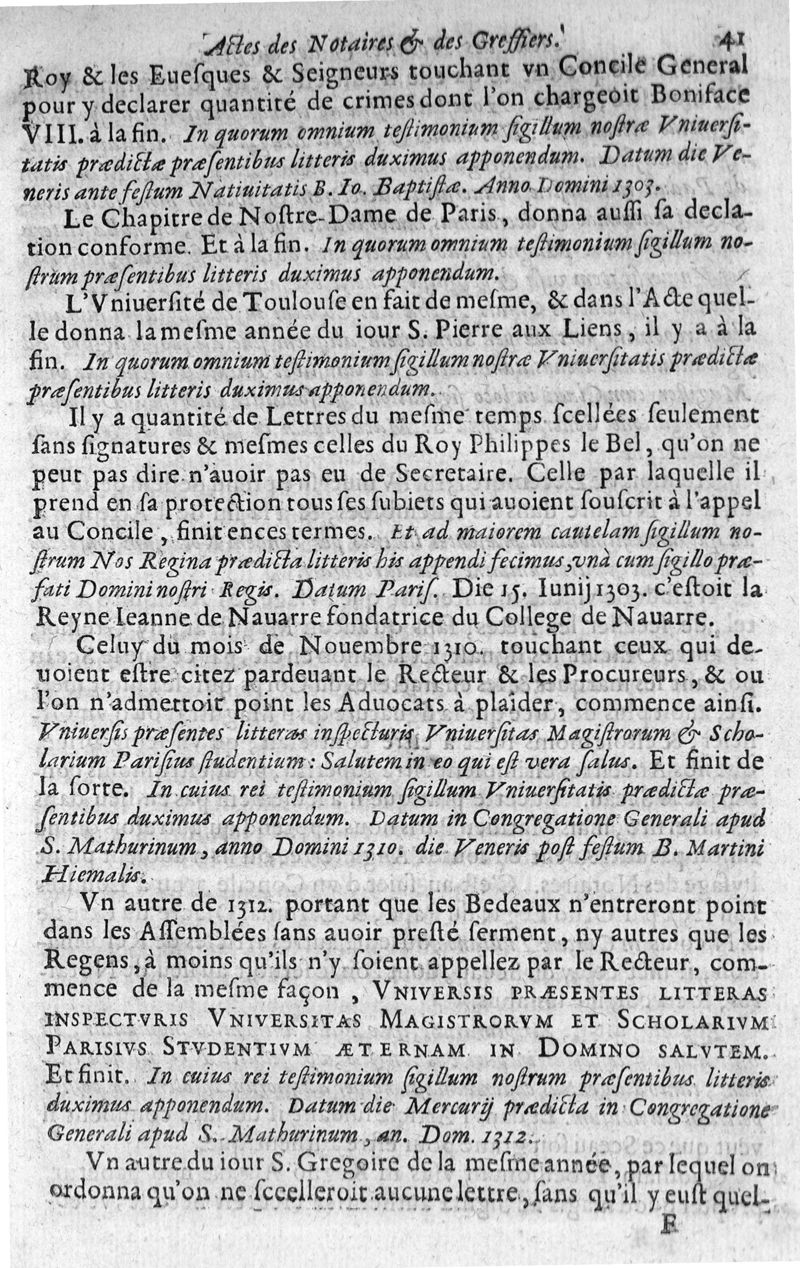 Actes des Notaires & des Greffiers. 41
Roy & les Euesques & Seigneurs touchant vn Concile General
pour y declarer quantité de crimes dont l'on chargeoit Boniface
VIII. à la fin. In quorum omnium testimonium sigillum nostræ Vniuersi-
tatis prædictæ præsentibus litteris duximus apponendum. Datum die Ve-
neris ante festum Natiuitatis B. Io. Baptistæ. Anno Domini 1303.
Le Chapitre de Nostre-Dame de Paris, donna aussi sa decla-
tion conforme. Et à la fin. In quorum omnium testimonium sigillum no-
strum præsentibus litteris duximus apponendum.
L'Vniuersité de Toulouse en fait de mesme, & dans l'Acte quel-
le donna la mesme année du iour S. Pierre aux Liens, il y a à la
fin. In quorum omnium testimonium sigillum nostræ Vniuersitatis prædictæ
præsentibus litteris duximus apponendum.
Il y a quantité de Lettres du mesme temps scellées seulement
sans signatures & mesmes celles du Roy Philippes le Bel, qu'on ne
peut pas dire n'auoir pas eu de Secretaire. Celle par laquelle il
prend en sa protection tous ses subiets qui auoient souscrit à l'appel
au Concile, finit ences termes. Et ad maiorem cautelam sigillum no-
strum Nos Regina prædicta litteris his appendi fecimus, vnà cum sigillo præ-
fati Domini nostri Regis. Datum Paris. Die 15. Iunij 1303. c'estoit la
Reyne Ieanne de Nauarre fondatrice du College de Nauarre.
Celuy du mois de Nouembre 1310. touchant ceux qui de-
uoient estre citez pardeuant le Recteur & les Procureurs, & ou
l'on n'admettoit point les Aduocats à plaider, commence ainsi.
Vniuersis præsentes litteras inspecturis Vniuersitas Magistrorum & Scho-
larium Parisius studentium: Salutem in eo qui est vera salus. Et finit de
la sorte. In cuius rei testimonium sigillum Vniuersitatis prædictæ præ-
sentibus duximus apponendum. Datum in Congregatione Generali apud
S. Mathurinum, anno Domini 1310. die Veneris post festum B. Martini
Hiemalis.
Vn autre de 1312. portant que les Bedeaux n'entreront point
dans les Assemblées sans auoir presté serment, ny autres que les
Regens, à moins qu'ils n'y soient appellez par le Recteur, com-
mence de la mesme façon, VNIVERSIS PRÆSENTES LITTERAS
INSPECTVRIS VNIVERSITAS MAGISTRORVM ET SCHOLARIVM
PARISIVS STVDENTIVM ÆTERNAM IN DOMINO SALVTEM.
Et finit. In cuius rei testimonium sigillum nostrum præsentibus litteris
duximus apponendum. Datum die Mercurij prædicta in Congregatione
Generali apud S. Mathurinum, an. Dom. 1312.
Vn autre du iour S. Gregoire de la mesme année, par lequel on
ordonna qu'on ne sccelleroit aucune lettre, sans qu'il y eust quel-
F